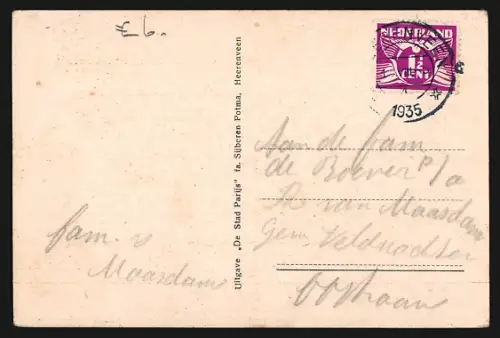 £6.
NEDERLAND
1½
CENT
1935
Uitgave „De Stad Parijs" fa. Sijberen Potma, Heerenveen
Aan de fam
de Boever p/a
van Maasdam
Gem.
fam. v
Maasdam